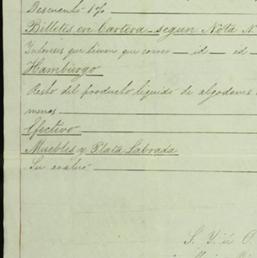 Descuento 1%
Billetes en Cartera segun Nota N.
Intereses que tienen que correr — id — ed
Hamburgo
Resto del producto liquido de algodones
menos
Efectivo
Muebles y Plata Labrada
Su avaluo